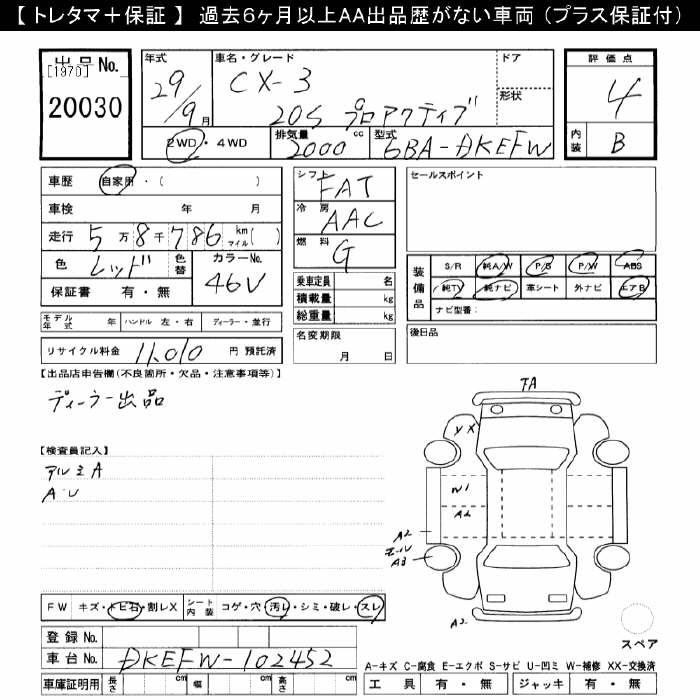 【 トレタマ＋保証 】 過去６ヶ月以上ＡＡ出品歴がない車両 （プラス保証付）
出品 No. [1970] 20030
年式 29/9月
車名・グレード CX-3
20S プロアクティブ
ドア
形状
評価点 4
内装 B
2WD・4WD
排気量 2000 cc
型式 6BA-DKEFW
車歴 自家用・( )
車検 年 月
走行 5万8千786 km マイル( )
色 レッド 色替 カラーNo. 46V
保証書 有・無
シフト FAT
冷房 AAC
燃料 G
乗車定員 名
積載量 kg
総重量 kg
名変期限
月 日
セールスポイント
装備品
S/R 純A/W P/S P/W ABS
純TV 純ナビ 革シート 外ナビ エアB
ナビ型番：
後日品
モデル年式 年 ハンドル 左・右 ディーラー・並行
リサイクル料金 11,010 円 預託済
【出品店申告欄(不良箇所・欠品・注意事項等)】
ディーラー出品
【検査員記入】
アルミA
AU
FA
Y X
W1
A2
A2
モール
A3
A2
スペア
FW キズ・トビ石・割レX シート内装 コゲ・穴・汚レ・シミ・破レ・スレ
登録 No.
車台 No. DKEFW-102452
車庫証明用 長さ cm 幅 cm 高さ cm
A-キズ C-腐食 E-エクボ S-サビ U-凹ミ W-補修 XX-交換済
工具 有・無 ジャッキ 有・無